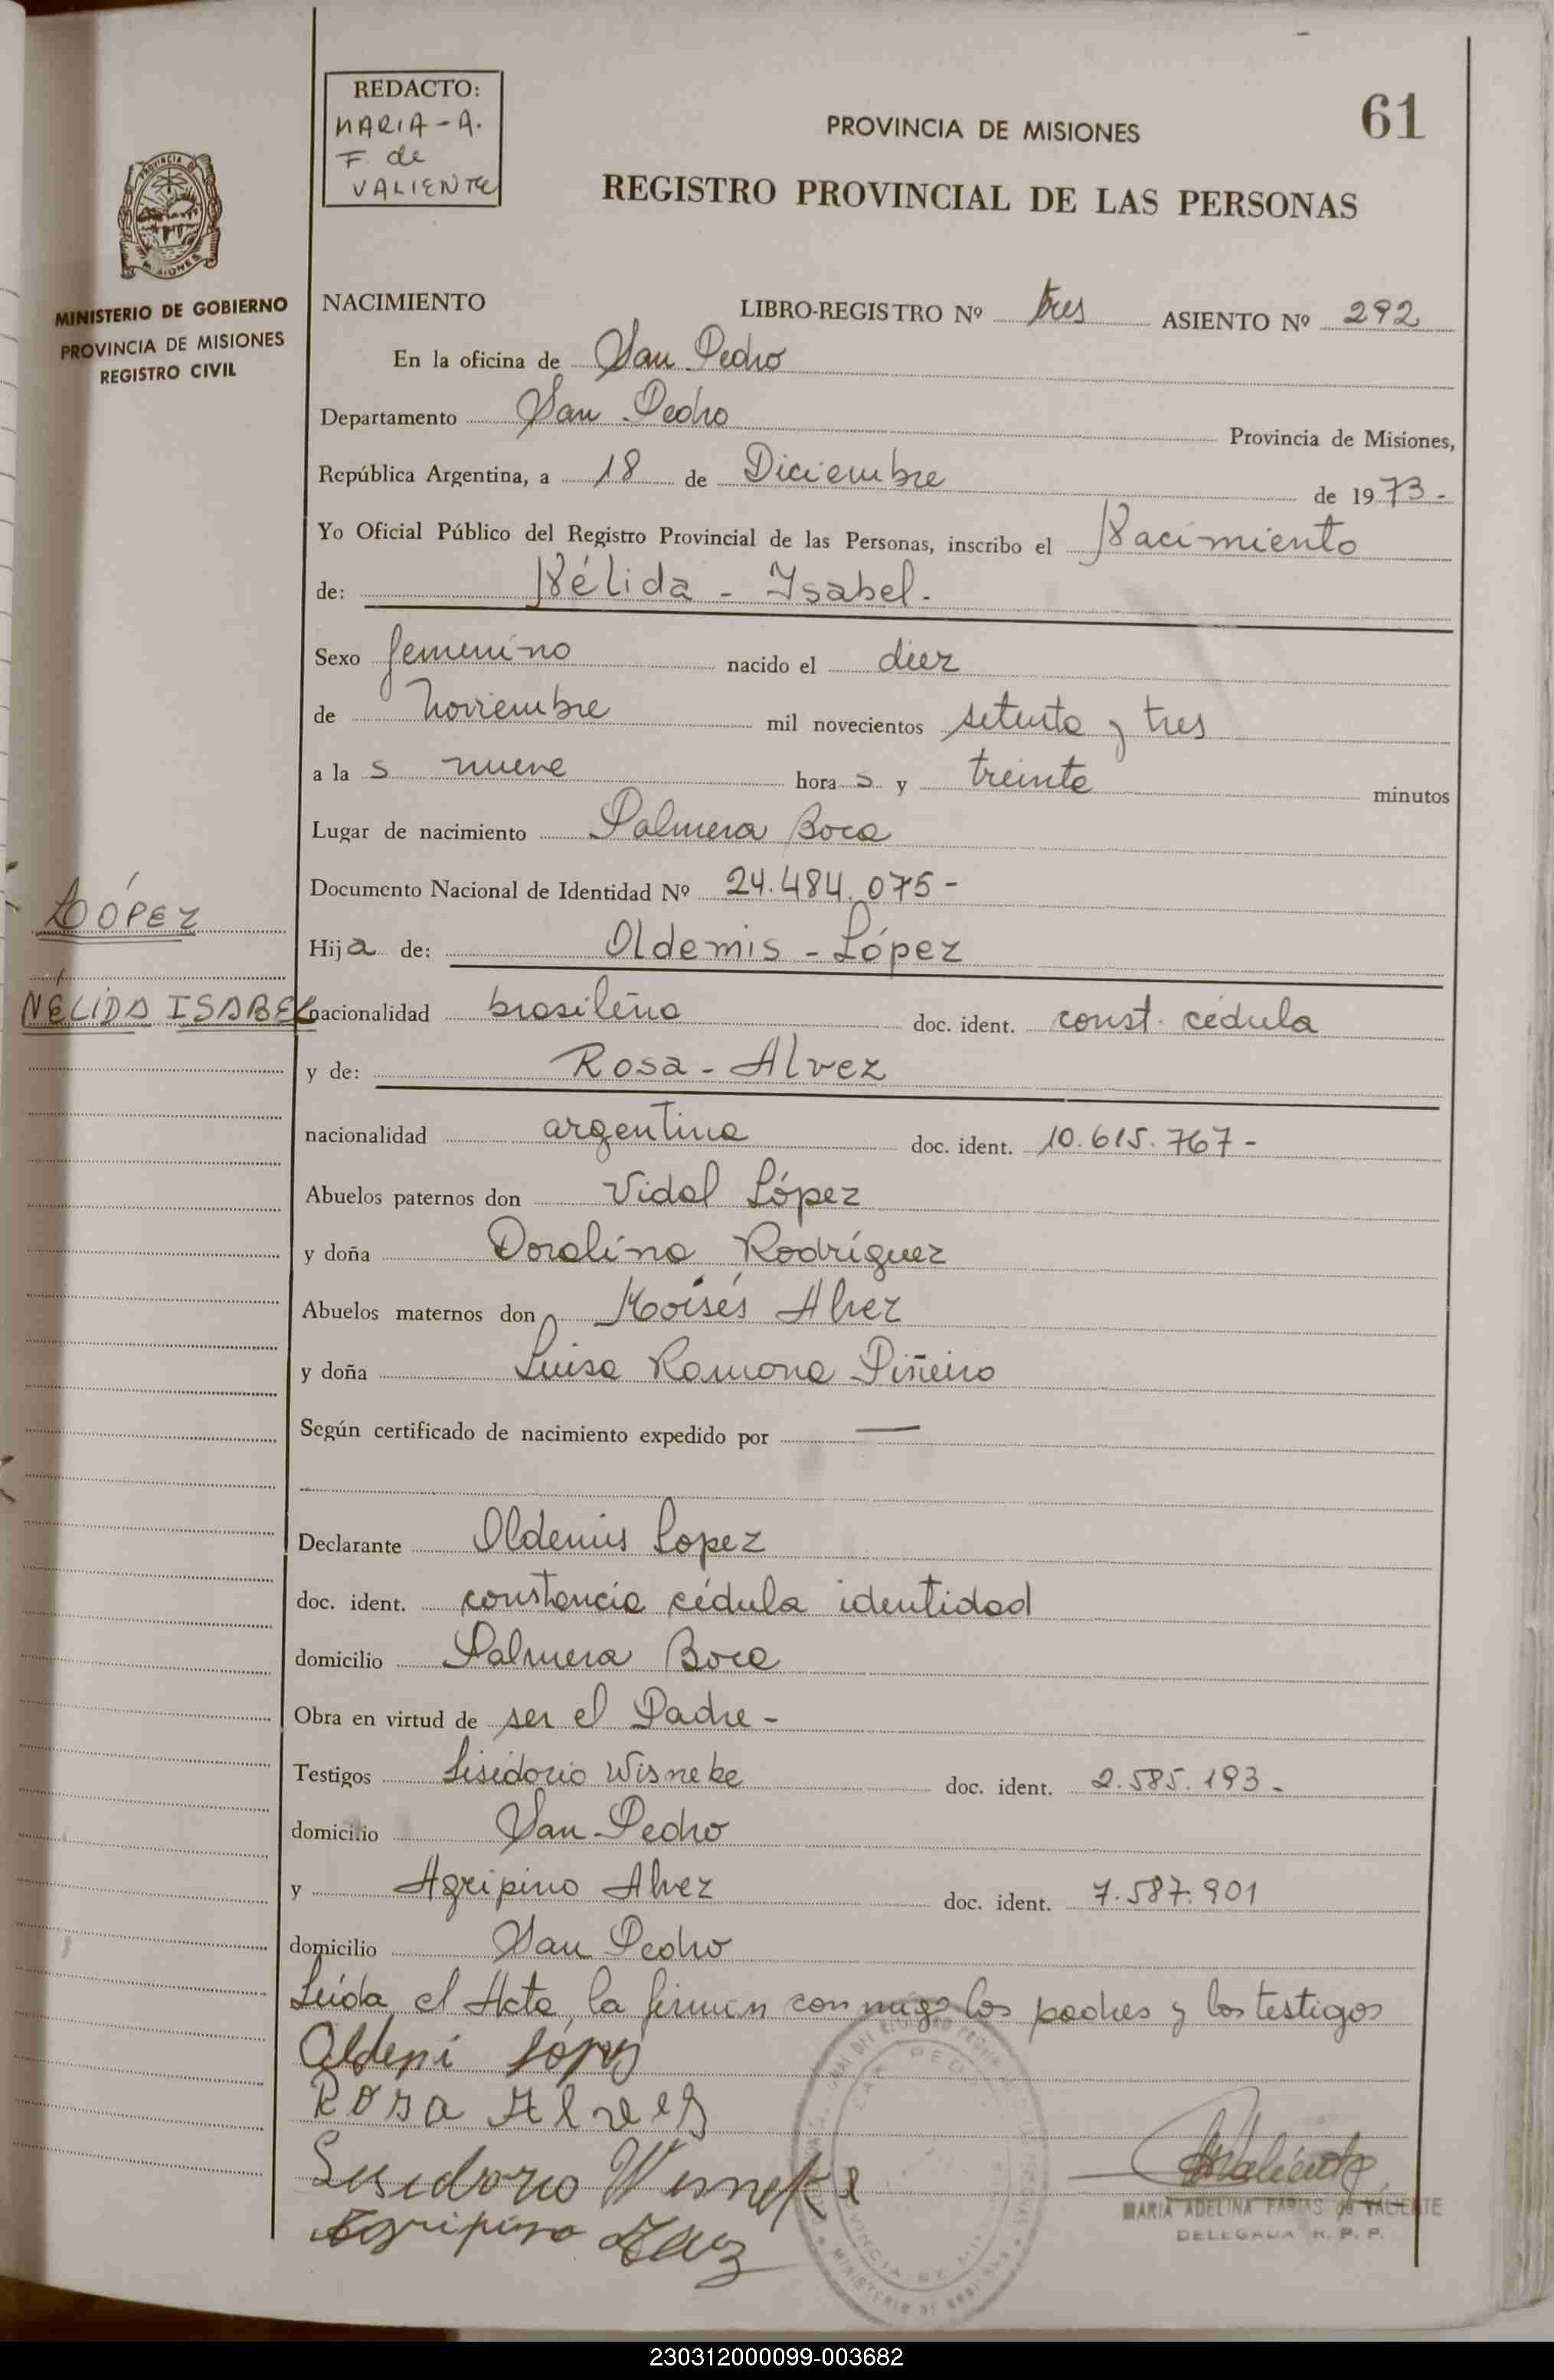 REDACTO:
MARIA-A.
F. de
VALIENTE
PROVINCIA DE MISIONES
61
REGISTRO PROVINCIAL DE LAS PERSONAS
MINISTERIO DE GOBIERNO
PROVINCIA DE MISIONES
REGISTRO CIVIL
NACIMIENTO LIBRO-REGISTRO Nº tres ASIENTO Nº 292
En la oficina de San Pedro
Departamento San Pedro Provincia de Misiones,
República Argentina, a 18 de Diciembre de 1973-
Yo Oficial Público del Registro Provincial de las Personas, inscribo el Nacimiento
de: Nélida - Ysabel.
Sexo femenino nacido el diez
de noviembre mil novecientos setenta y tres
a la s nueve hora s y treinta minutos
Lugar de nacimiento Palmera Boca
Documento Nacional de Identidad Nº 24.484.075-
LÓPEZ
Hija de: Oldemis - López
NÉLIDA ISABEL
nacionalidad brasileña doc. ident. const. cédula
y de: Rosa - Alvez
nacionalidad argentina doc. ident. 10.615.767-
Abuelos paternos don Vidal López
y doña Doralina Rodríguez
Abuelos maternos don Moisés Alvez
y doña Luisa Ramona Piñeiro
Según certificado de nacimiento expedido por —
Declarante Oldemis Lopez
doc. ident. constancia cédula identidad
domicilio Palmera Boca
Obra en virtud de ser el Padre -
Testigos Lisidorio Wisneke doc. ident. 2.585.193-
domicilio San Pedro
y Agripino Alvez doc. ident. 7.587.901
domicilio San Pedro
Leída el Acta, la firman con migo los padres y los testigos
Aldemi López
Rosa Alvez
Lisidorio Wisneke
Agripino
MARIA ADELINA FARIAS de VALIENTE
DELEGADA R. P. P.
230312000099-003682